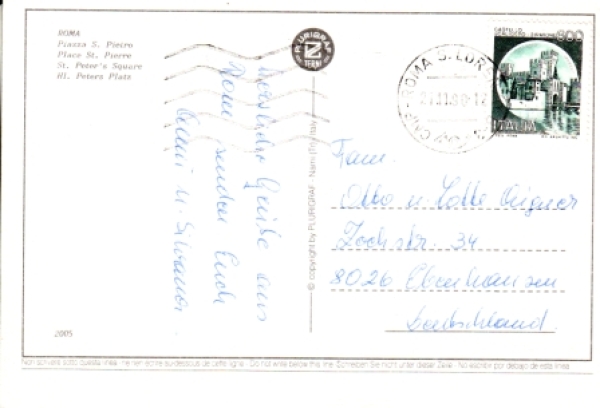 ROMA
Piazza S. Pietro
Place St. Pierre
St. Peter's Square
Hl. Peters Platz
PLURIGRAF
TERNI
CASTELLO
600
ITALIA
ROMA S. LOR
Herzliche Grüße aus
Rom senden Euch
u. Silvana
© copyright by PLURIGRAF - Narni (Tr) Italy
Fam.
Otto u. Lotte
Zochstr. 34
8026 Ebenhausen
Deutschland
2005
Non scrivere sotto questa linea - Ne rien écrire au-dessous de cette ligne - Do not write below this line - Schreiben Sie nicht unter dieser Zeile - No escribir por debajo de esta línea